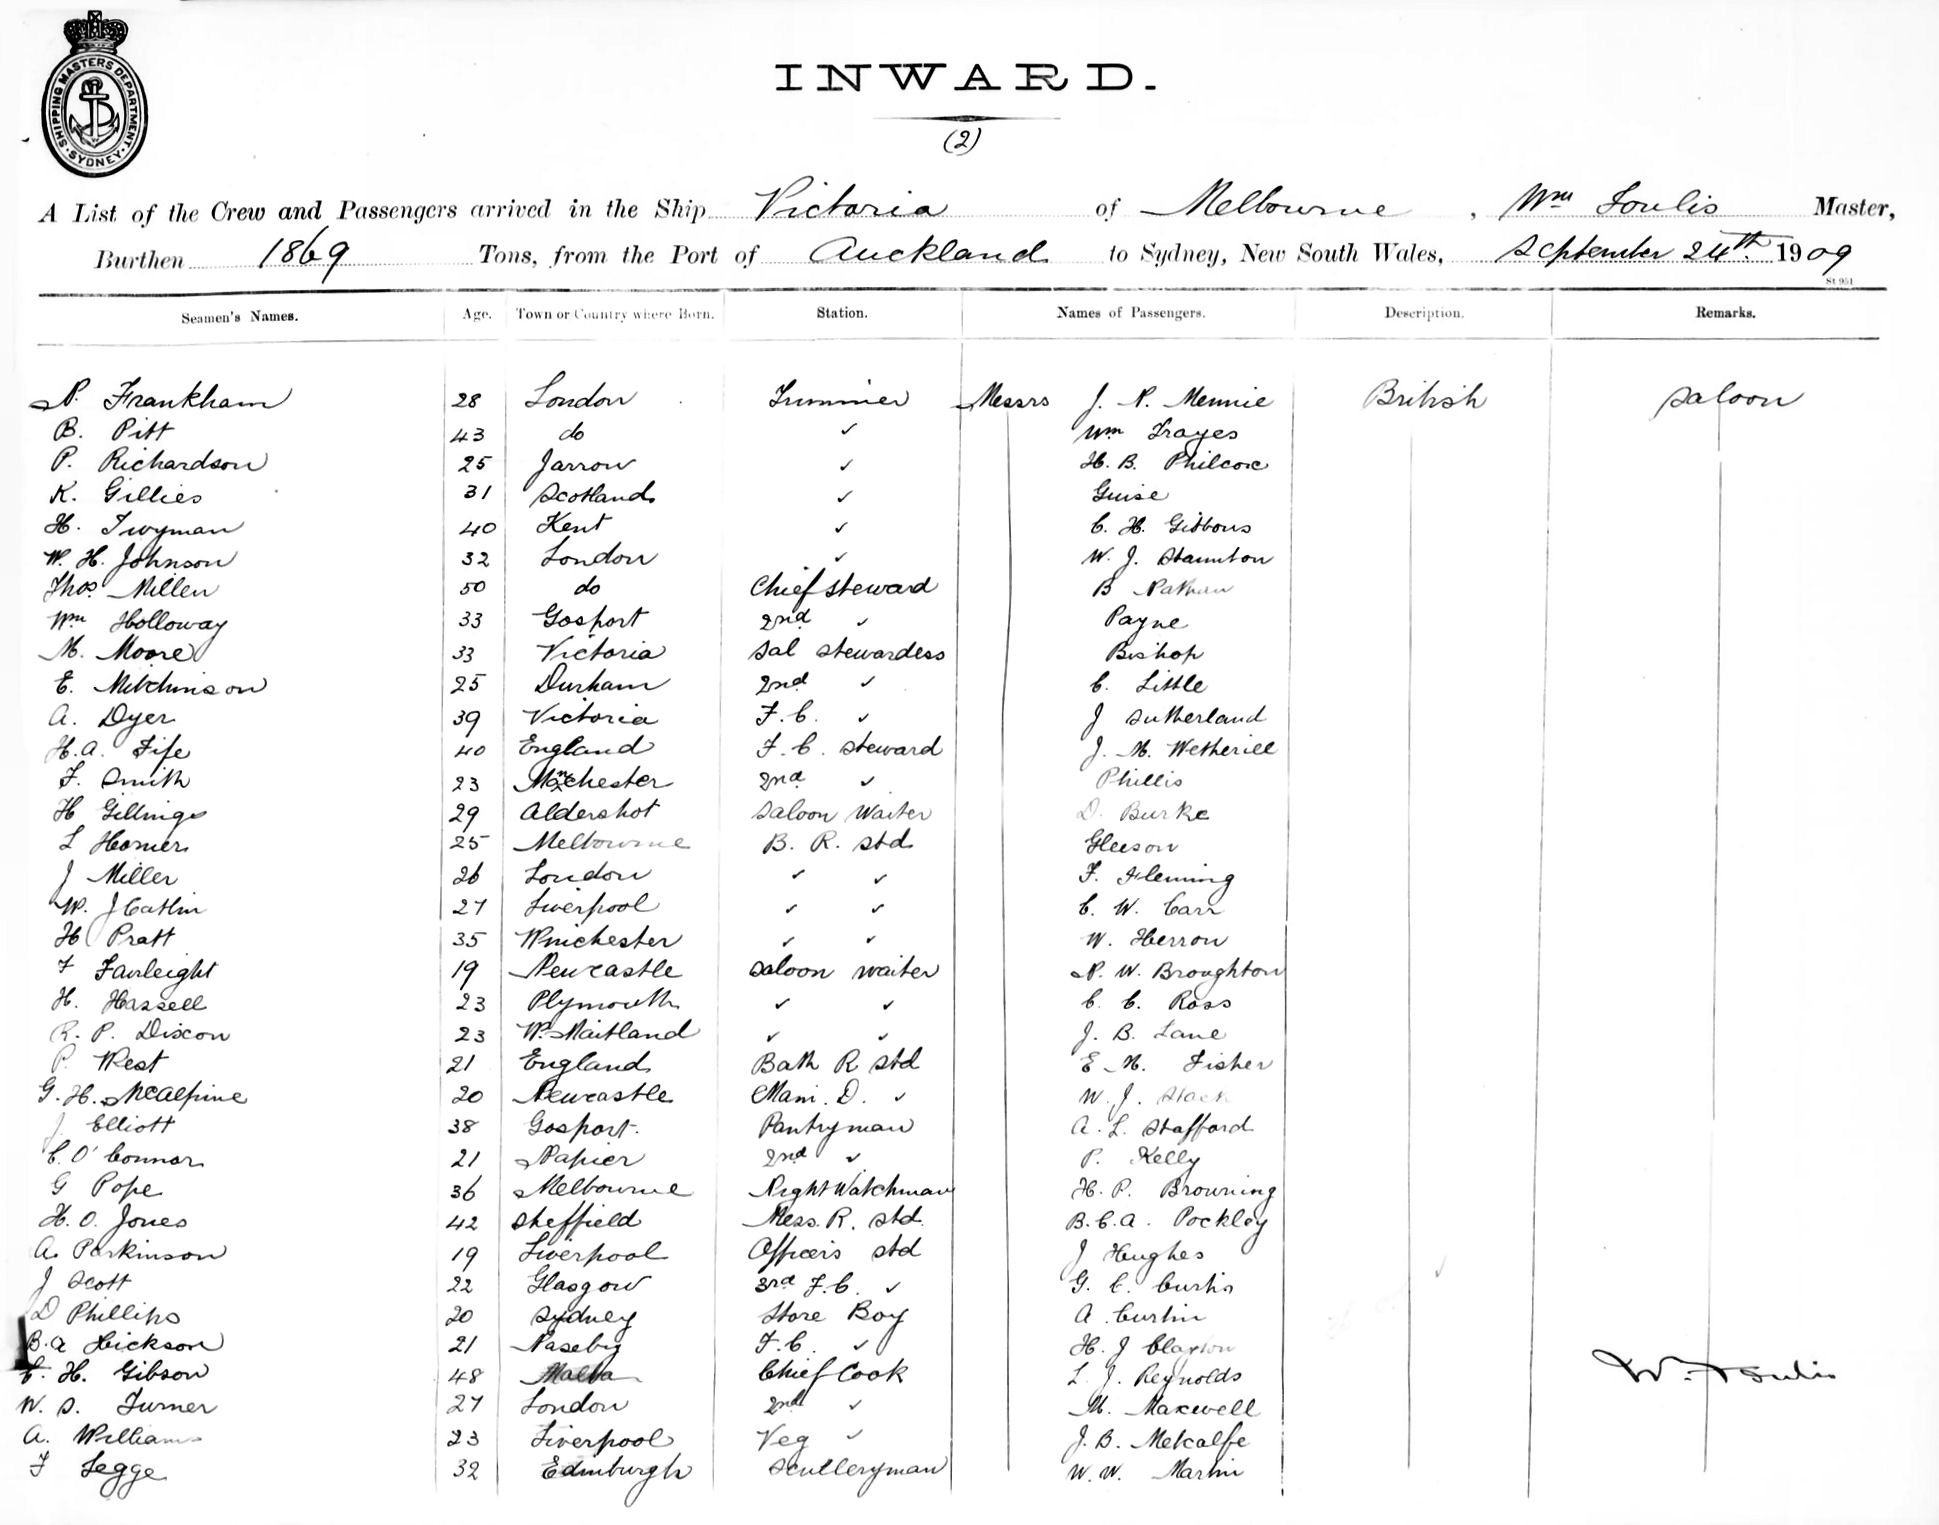 SHIPPING MASTERS DEPARTMENT
SYDNEY
INWARD.
(2)
A List of the Crew and Passengers arrived in the Ship Victoria of Melbourne, Wm Foulis Master,
Burthen 1869 Tons, from the Port of Auckland to Sydney, New South Wales, September 24th. 1909
St 951
Seamen's Names. Age. Town or Country where Born. Station. Names of Passengers. Description. Remarks.
N. Frankham 28 London Trimmer Messrs J. N. Mennie British Saloon
B. Pitt 43 do ✓ Wm Trayes
P. Richardson 25 Jarrow ✓ H. B. Philcox
K. Gillies 31 Scotland ✓ Guise
H. Twyman 40 Kent ✓ C. H. Gibbons
W. H. Johnson 32 London ✓ W. J. Staunton
Thos. Millen 50 do Chief Steward B Nathan
Wm Holloway 33 Gosport 2nd ✓ Payne
M. Moore 33 Victoria Sal Stewardess Bishop
E. Mitchinson 25 Durham 2nd ✓ C. Little
A. Dyer 39 Victoria F. C. ✓ J Sutherland
H. A. Fife 40 England F. C. Steward J. M. Wetherill
F. Smith 23 Manchester 2nd ✓ Phillis
H Gillings 29 Aldershot Saloon Waiter D. Burke
L Homer 25 Melbourne B. R. Std Gleeson
J Miller 26 London ✓ ✓ F. Fleming
W. J Catlin 27 Liverpool ✓ ✓ C. W. Carr
H Pratt 35 Winchester ✓ ✓ W. Herron
F Fairleight 19 Newcastle Saloon Waiter N. W. Broughton
H. Hassell 23 Plymouth ✓ ✓ C. C. Ross
R. P. Dixon 23 W. Maitland ✓ ✓ J. B. Lane
P. West 21 England Bath R Std E M. Fisher
G. H. McAlpine 20 Newcastle Mani. D. ✓ W. J. Stack
J. Elliott 38 Gosport. Pantryman A. L. Stafford
C. O'Connor 21 Napier 2nd ✓ P. Kelly
G Pope 36 Melbourne Night Watchman H. P. Browning
H. O. Jones 42 Sheffield Mess. R. Std. B. C. A. Pockley
A. Parkinson 19 Liverpool Officers Std J Hughes
J Scott 22 Glasgow 3rd F. C. ✓ G. C. Curtis
D Phillips 20 Sydney Store Boy A. Curtin
B. A Hickson 21 Naseby F. C. ✓ H. J Clayton
C. H. Gibson 48 Malta Chief Cook L. J. Reynolds
W. Foulis
W. S. Turner 27 London 2nd ✓ M. Maxwell
A. Williams 23 Liverpool Veg ✓ J. B. Metcalfe
F Legge 32 Edinburgh Sculleryman W. W. Martin